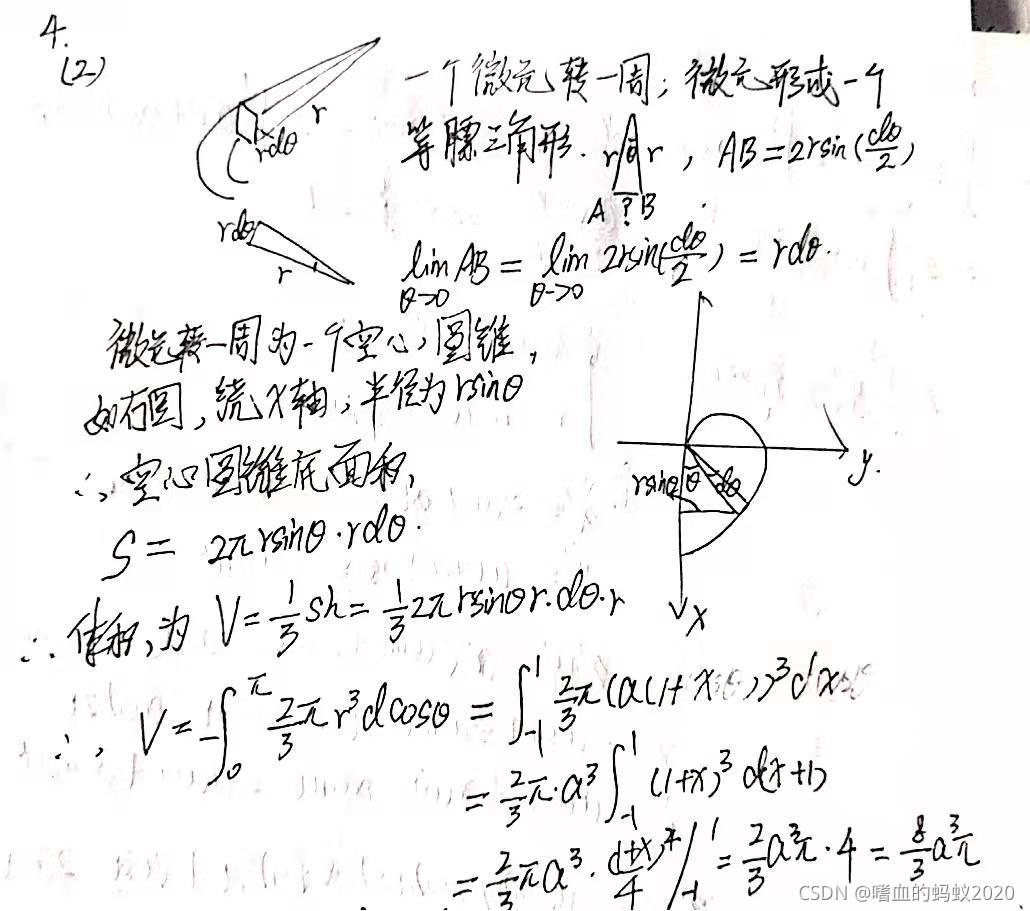 4.
(2)
r
rdθ
一个微元转一周；微元形成一个
等腰三角形. r θ r , AB=2rsin(dθ/2)
A ? B
rdθ
r
lim θ→0 AB = lim θ→0 2rsin(dθ/2) = rdθ.
微元转一周为一个空心圆锥，
如右图，绕X轴，半径为rsinθ
∴空心圆锥底面积，
S = 2πrsinθ·rdθ.
y.
rsinθ θ dθ
x
∴体积，为 V=1/3 Sh=1/3 2πrsinθr·dθ·r
∴, V=-∫₀^π 2/3 π r³dcosθ = ∫₋₁^1 2/3 π(a(1+x))³dx
= 2/3 π·a³ ∫₋₁^1 (1+x)³ d(x+1)
= 2/3 πa³·(1+x)⁴/4 |₋₁^1 = 2/3 a³π·4 = 8/3 a³π
CSDN @嗜血的蚂蚁2020